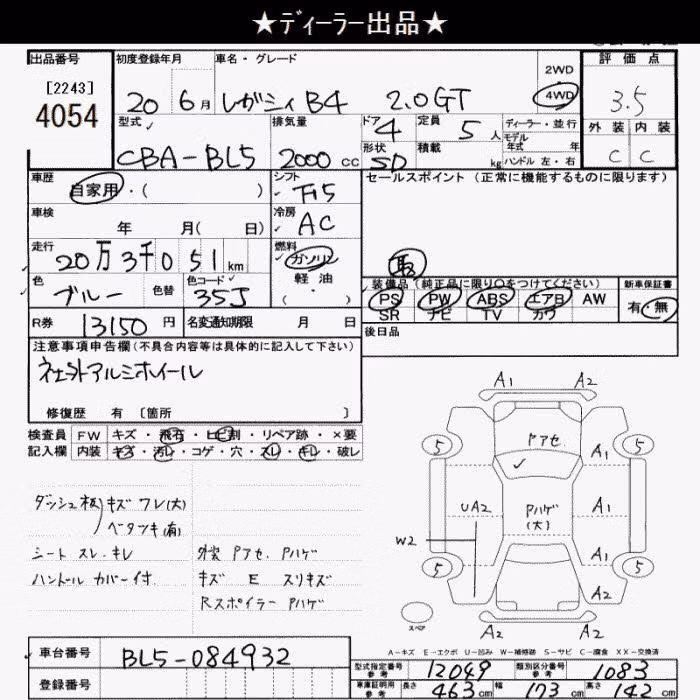 ★ディーラー出品★
出品番号
[2243]
4054
初度登録年月
20年 6月
車名・グレード
レガシィB4 2.0GT
2WD
4WD
評価点
3.5
外装 内装
C C
型式
CBA-BL5
排気量
2000 cc
ドア 4
形状 SD
定員 5 人
積載 kg
ディーラー・並行
モデル
年式 年
ハンドル 左・右
車歴
自家用・( )
シフト
Fi5
セールスポイント (正常に機能するものに限ります)
車検
年 月( 日)
冷房
AC
走行
20万3千051 km
燃料
ガソリン
軽油
( ・ )
取
色
ブルー
色替
色コード
35J
装備品 (純正品に限り○をつけてください)
PS PW ABS エアB AW
SR ナビ TV カワ
新車保証書
有・無
R券
13150 円
名変通知期限 月 日
後日品
注意事項申告欄(不具合内容等は具体的に記入して下さい)
社外アルミホイール
修復歴 有 〔箇所 〕
検査員
記入欄
FW キズ・飛石・ヒビ割・リペア跡・×要
内装 キズ・汚レ・コゲ・穴・スレ・キレ・破レ
ダッシュ板 キズ ワレ(大)
ベタツキ(有)
シート スレ.キレ
ハンドル カバー付
外装 Pアセ. Pハゲ
キズ E スリキズ
Rスポイラー Pハゲ
A1 A2
5 Pアセ. 5
A1
UA2 Pハゲ(大) A1
W2
A1
5 5
A2
A2 A2
スペア
A-キズ E-エクボ U-凹み W-補修跡 S-サビ C-腐食 XX-交換済
車台番号
BL5-084932
登録番号
型式指定番号
参考
12049
類別区分番号
参考
1083
車庫証明用
参考
長さ 463 cm 幅 173 cm 高さ 142 cm